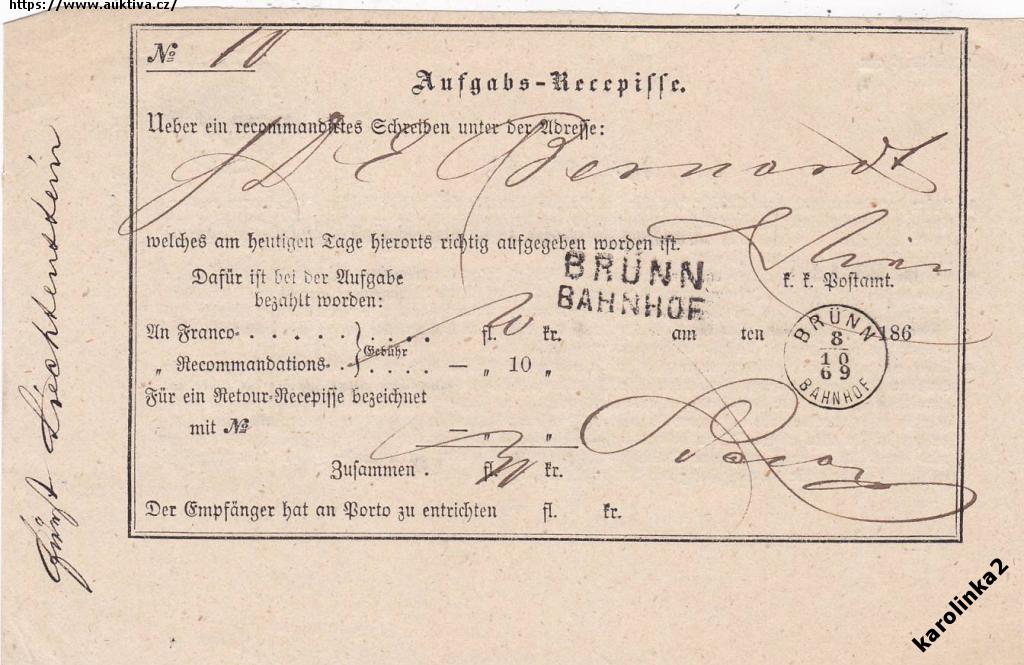 https://www.auktiva.cz/
№ 10
Aufgabs-Recepisse.
Ueber ein recommandirtes Schreiben unter der Adresse:
E Bernardt
welches am heutigen Tage hierorts richtig aufgegeben worden ist.
Wien
Dafür ist bei der Aufgabe
bezahlt worden:
BRÜNN
BAHNHOF
k. k. Postamt.
An Franco- . . . . . . . . . . fl. kr. am ten 186
Gebühr
„ Recommandations- . . . . . — „ 10 „
BRÜNN
8
10
69
BAHNHOF
Für ein Retour-Recepisse bezeichnet
mit № — „ „
Zusammen . fl. kr.
Der Empfänger hat an Porto zu entrichten fl. kr.
Fürst Liechtenstein
karolinka2